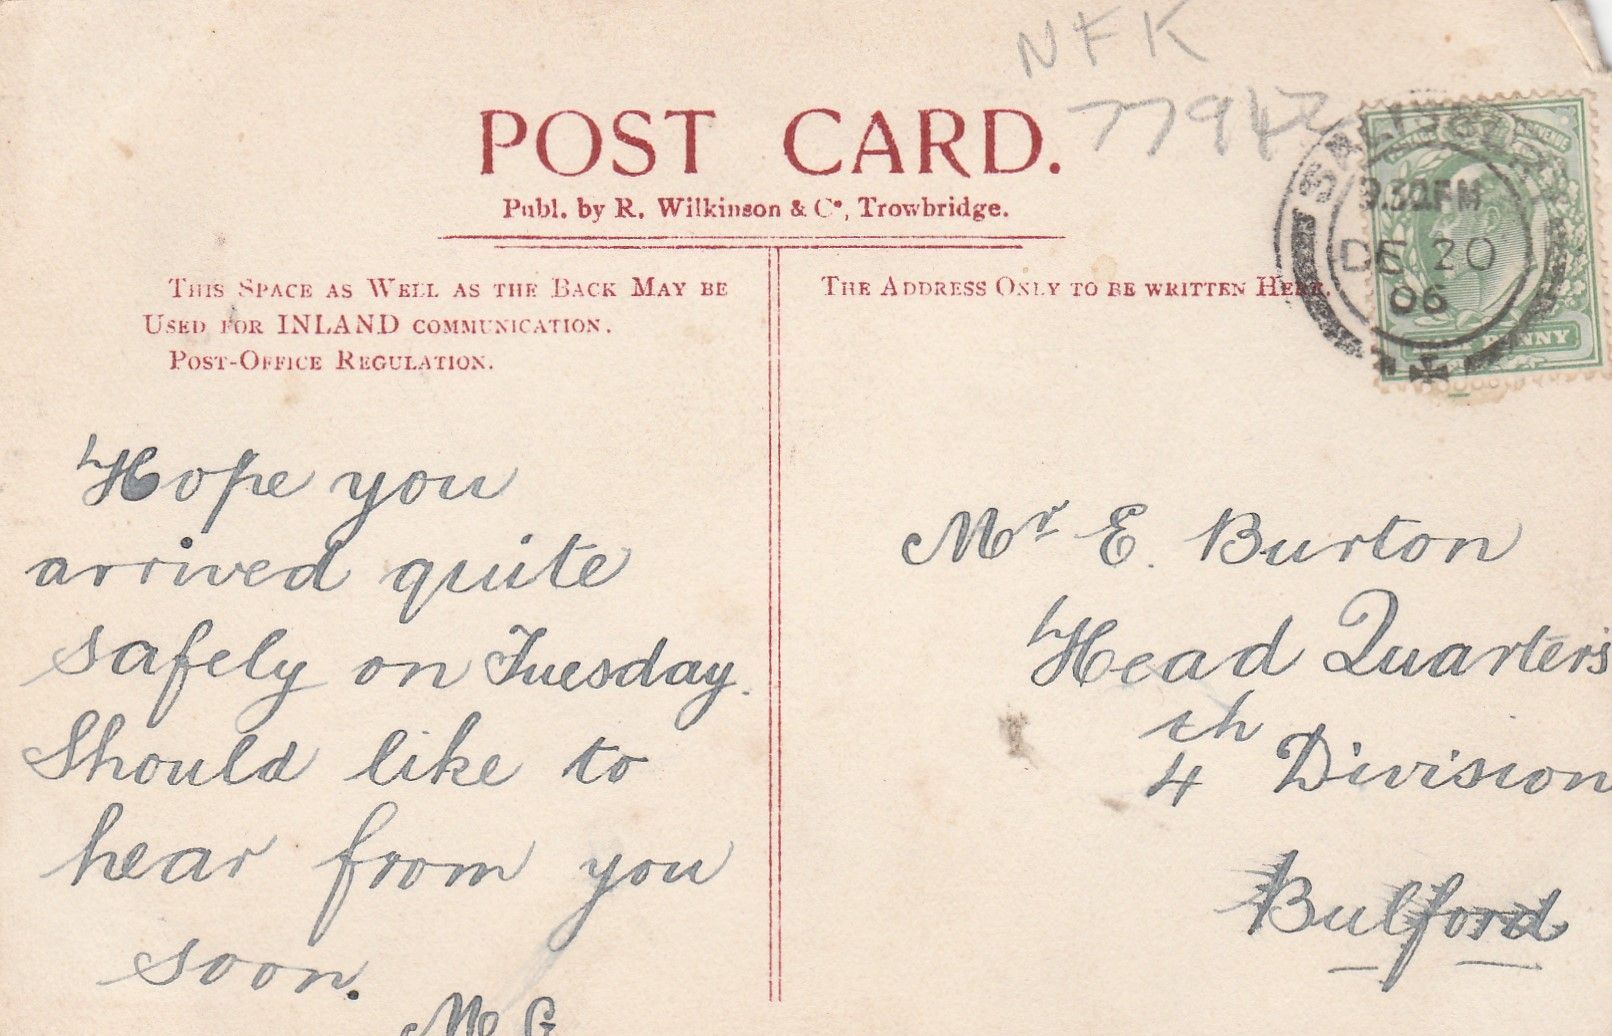 NFK
77947
POST CARD.
Publ. by R. Wilkinson & Co, Trowbridge.
THIS SPACE AS WELL AS THE BACK MAY BE
USED FOR INLAND COMMUNICATION.
POST-OFFICE REGULATION.
THE ADDRESS ONLY TO BE WRITTEN HERE.
SALISBURY
9.30PM
DE 20
06
PENNY
Hope you
arrived quite
safely on Tuesday.
Should like to
hear from you
soon.
Mr E. Burton
Head Quarters
4th Division
Bulford